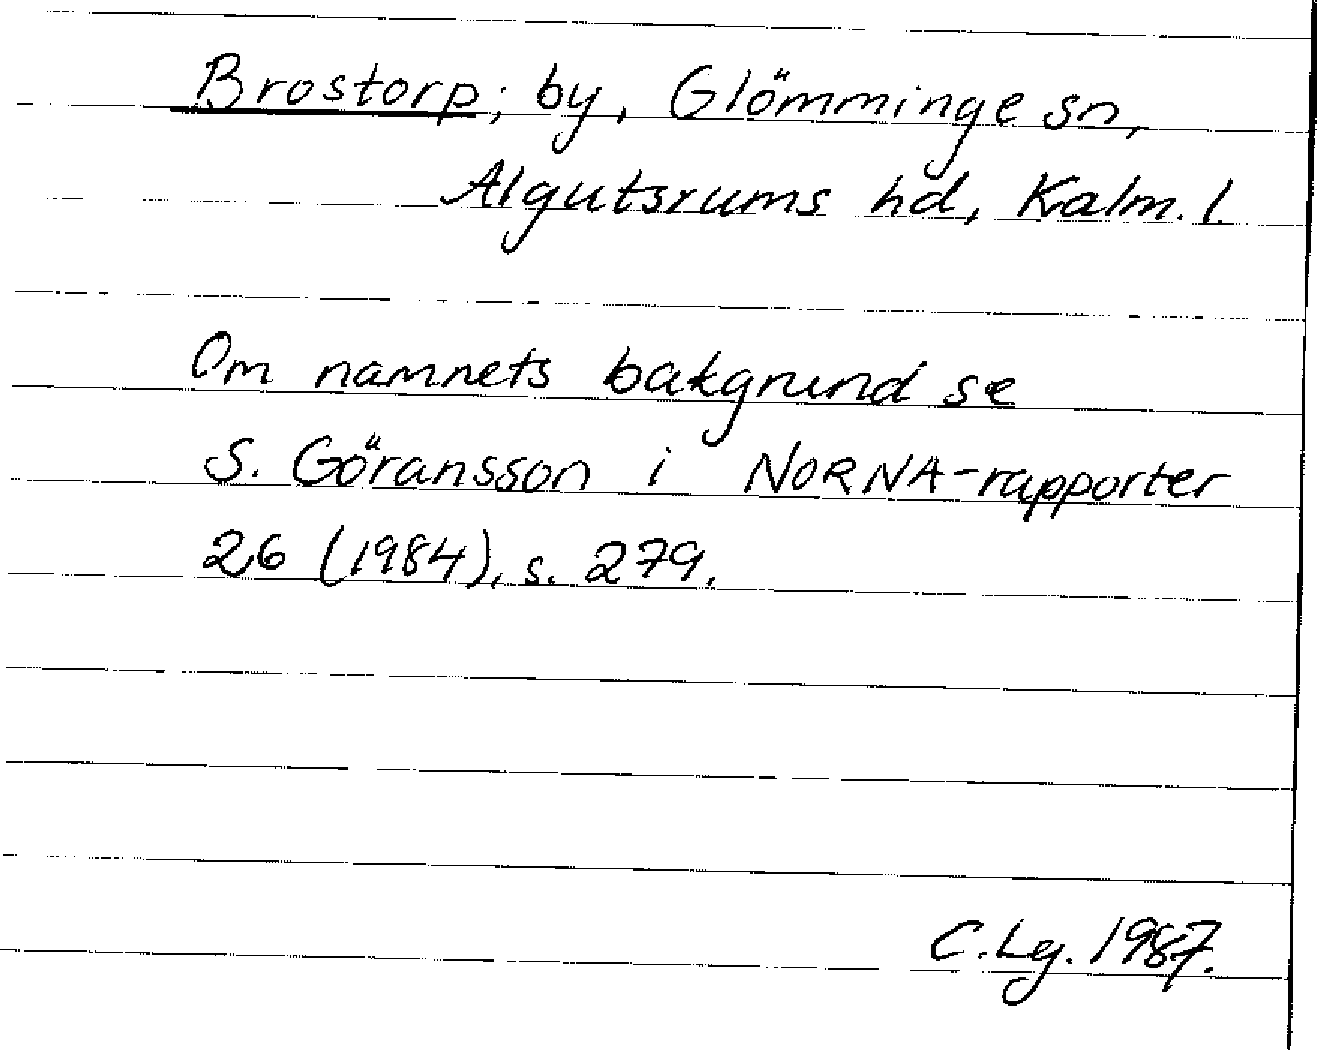 Brostorp; by, Glömminge sn,
Algutsrums hd, Kalm. l.
Om namnets bakgrund se
S. Göransson i NORNA-rapporter
26 (1984), s. 279.
C. Lg. 1987.